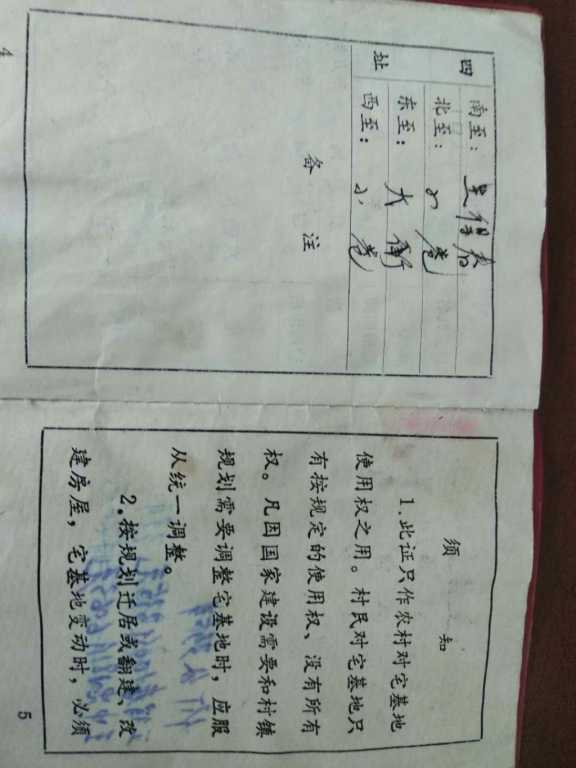 四址
南至：
北至：小巷
东至：大街
西至：小巷
备 注
4
须 知
1.此证只作农村对宅基地
使用权之用。村民对宅基地只
有按规定的使用权、没有所有
权。凡因国家建设需要和村镇
规划需要调整宅基地时，应服
从统一调整。
2.按规划迁居或翻建、改
建房屋，宅基地变动时，必须
5